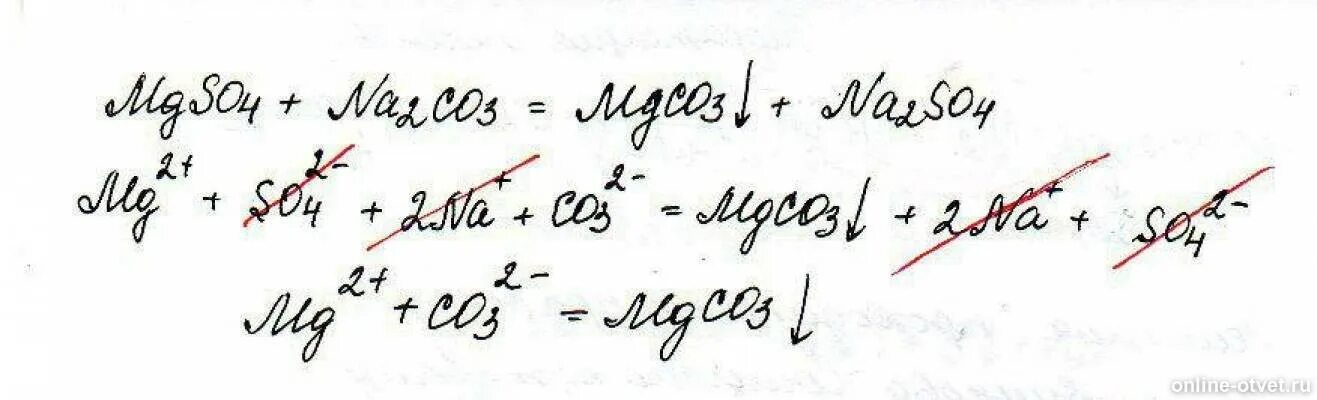 MgSO4 + Na2CO3 = MgCO3↓ + Na2SO4
Mg²⁺ + SO4²⁻ + 2Na⁺ + CO3²⁻ = MgCO3↓ + 2Na⁺ + SO4²⁻
Mg²⁺ + CO3²⁻ = MgCO3↓
online-otvet.ru